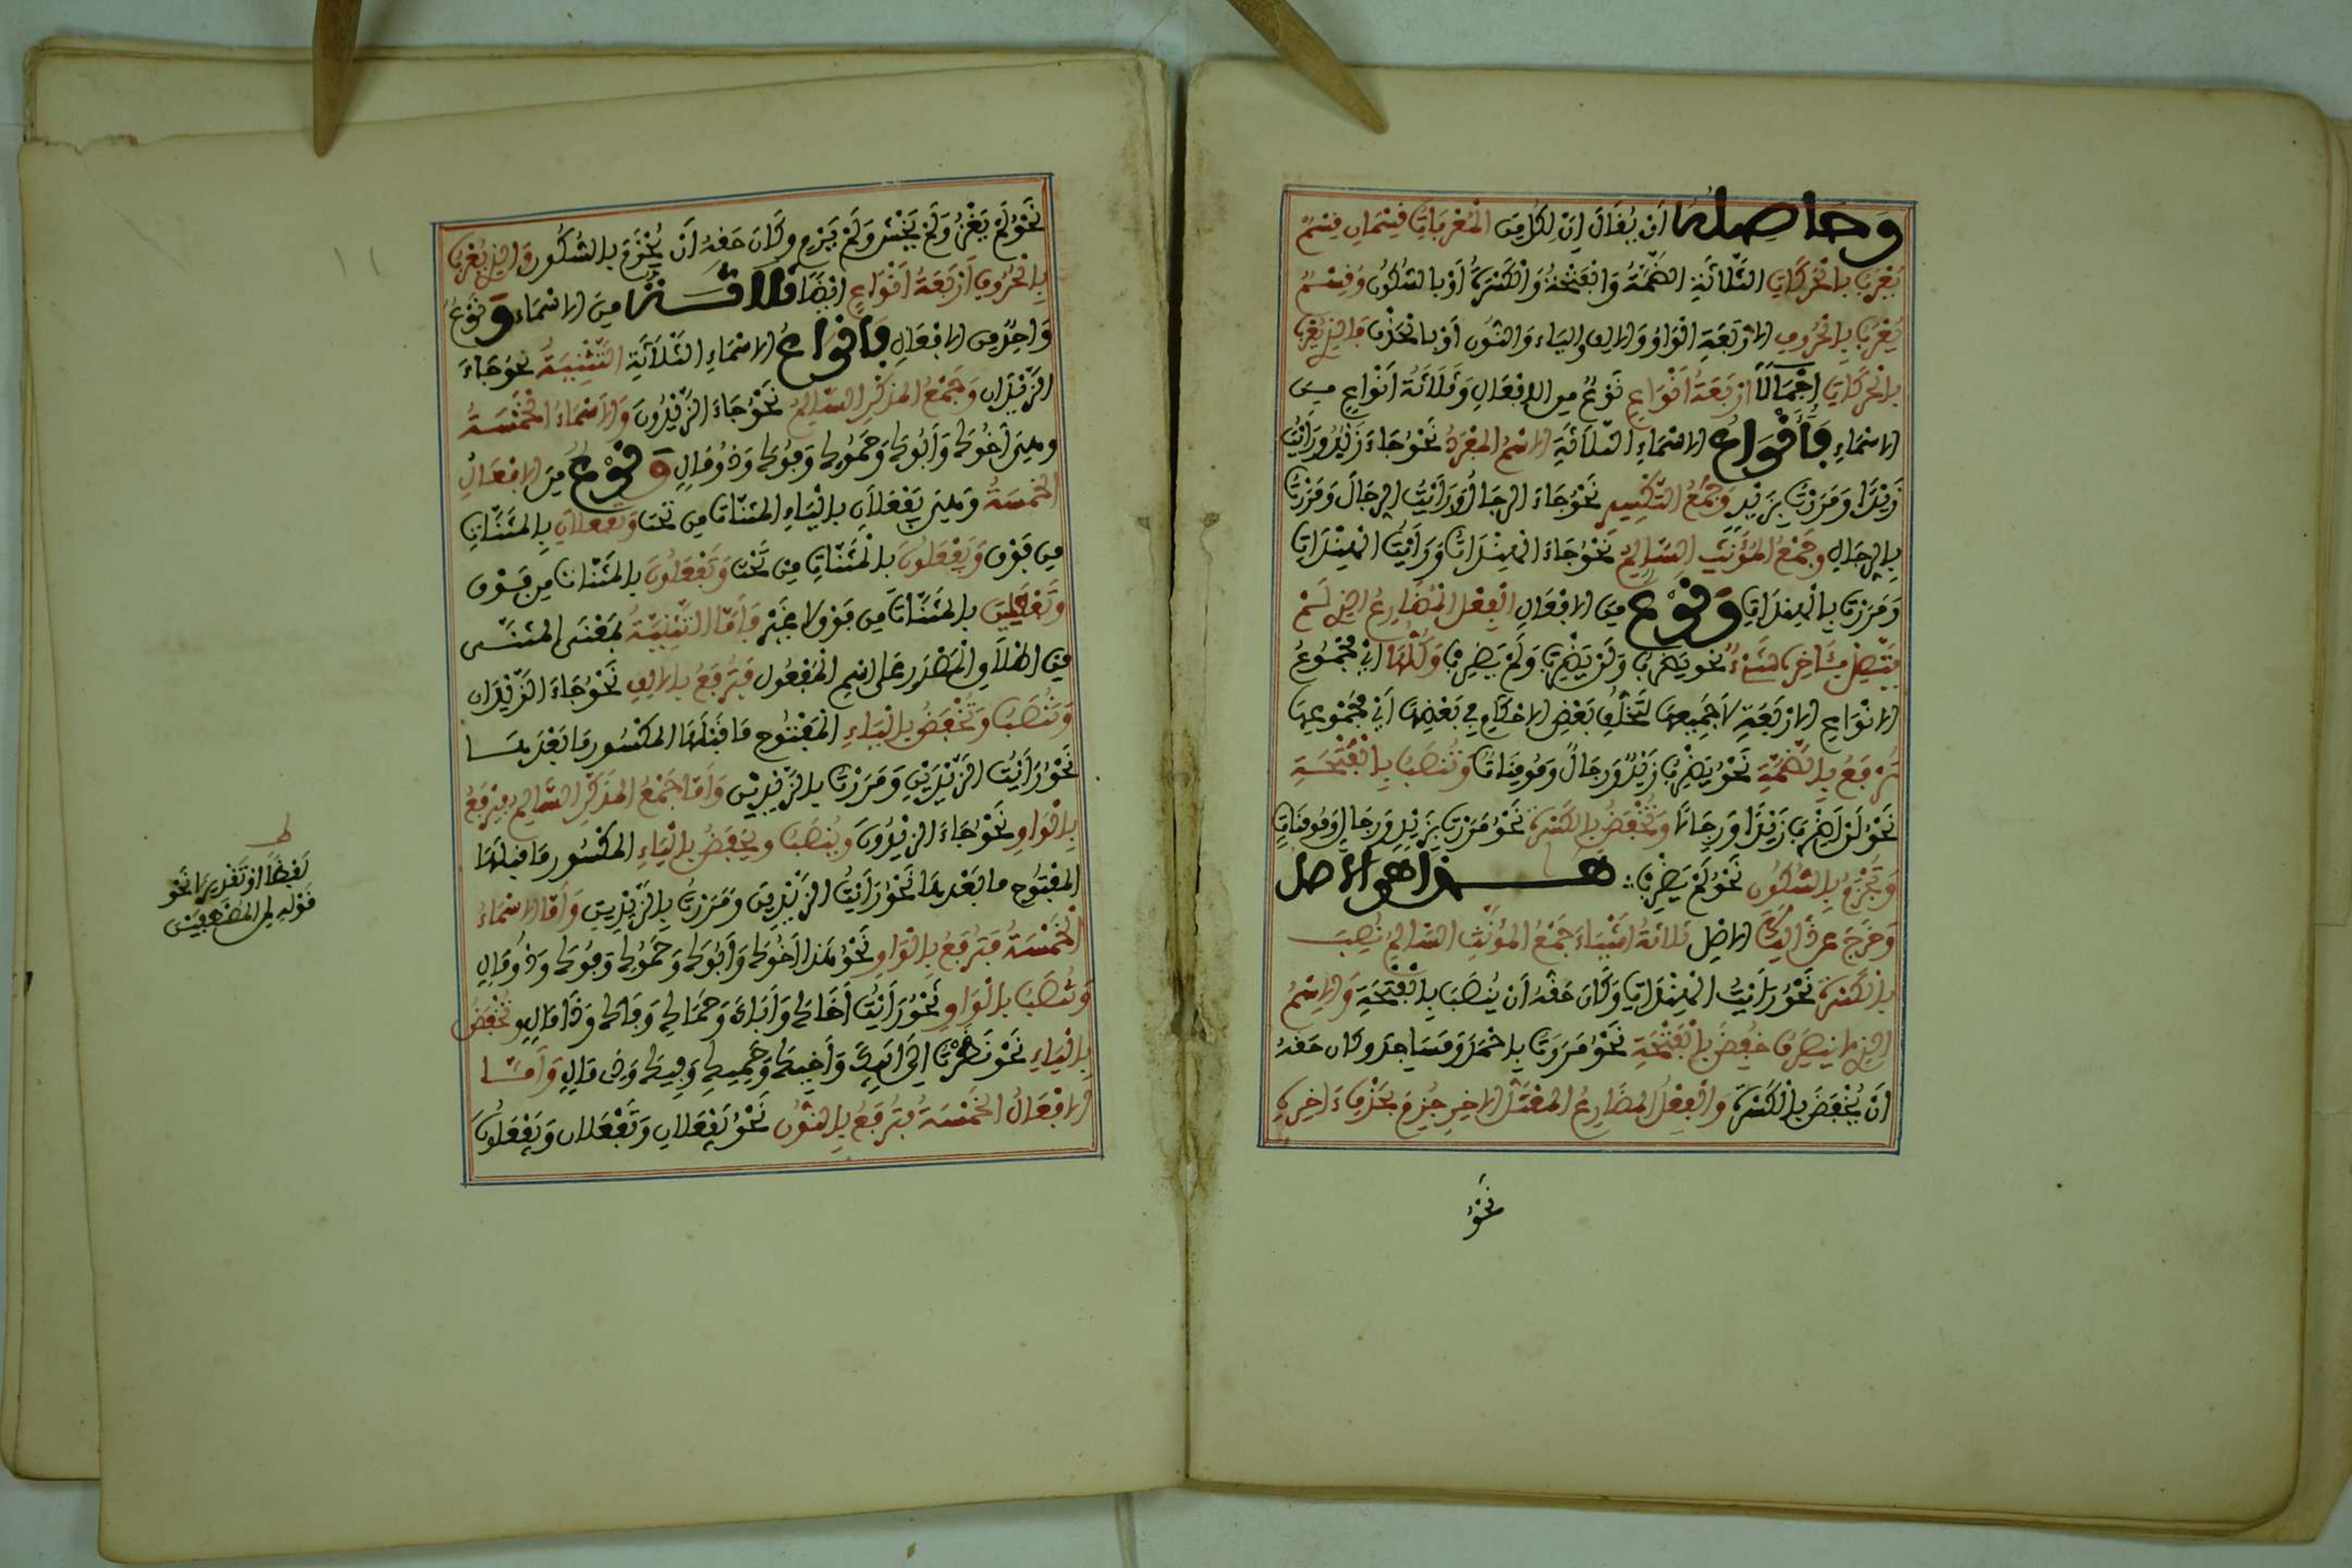 وَحَاصِلُهَا أَنْ يُقَالَ إِنَّ الْكُلَّ مِنَ الْمُعْرَبَاتِ قِسْمَانِ قِسْمٌ
يُعْرَبُ بِالْحَرَكَاتِ الثَّلَاثَةِ الضَّمَّةُ وَالْفَتْحَةُ وَالْكَسْرَةُ أَوْ بِالسُّكُونِ وَقِسْمٌ
يُعْرَبُ بِالْحُرُوفِ الْأَرْبَعَةِ الْوَاوُ وَالْأَلِفُ وَالْيَاءُ وَالنُّونُ أَوْ بِالْحَذْفِ فَالَّذِي يُعْرَبُ
بِالْحَرَكَاتِ إِجْمَالًا أَرْبَعَةُ أَنْوَاعٍ نَوْعٌ مِنَ الْأَفْعَالِ وَثَلَاثَةُ أَنْوَاعٍ مِنَ
الْأَسْمَاءِ فَأَنْوَاعُ الْأَسْمَاءِ الثَّلَاثَةِ الِاسْمُ الْمُفْرَدُ نَحْوُ جَاءَ زَيْدٌ وَرَأَيْتُ
زَيْدًا وَمَرَرْتُ بِزَيْدٍ وَجَمْعُ التَّكْسِيرِ نَحْوُ جَاءَ الرِّجَالُ وَرَأَيْتُ الرِّجَالَ وَمَرَرْتُ
بِالرِّجَالِ وَجَمْعُ الْمُؤَنَّثِ السَّالِمُ نَحْوُ جَاءَ الْهِنْدَاتُ وَرَأَيْتُ الْهِنْدَاتِ
وَمَرَرْتُ بِالْهِنْدَاتِ وَنَوْعٌ مِنَ الْأَفْعَالِ الْفِعْلُ الْمُضَارِعُ الَّذِي لَمْ
يَتَّصِلْ بِآخِرِهِ شَيْءٌ نَحْوُ يَضْرِبُ وَلَنْ يَضْرِبَ وَلَمْ يَضْرِبْ وَكُلُّهَا أَيْ مَجْمُوعُ
الْأَنْوَاعِ الْأَرْبَعَةِ لَا جَمِيعِهَا لِتَخَلُّفِ بَعْضِ الْأَحْكَامِ فِي بَعْضِهَا أَيْ مَجْمُوعِهَا
تُرْفَعُ بِالضَّمَّةِ نَحْوُ يَضْرِبُ زَيْدٌ وَرِجَالٌ وَمُومِنَاتٌ وَتُنْصَبُ بِالْفَتْحَةِ
نَحْوُ لَنْ يَضْرِبَ زَيْدًا وَرِجَالًا وَتُخْفَضُ بِالْكَسْرَةِ نَحْوُ مَرَرْتُ بِزَيْدٍ وَرِجَالٍ وَمُومِنَاتٍ
وَتُجْزَمُ بِالسُّكُونِ نَحْوُ لَمْ يَضْرِبْ هــذا هو الاصل
وَخَرَجَ عَنْ ذَلِكَ الْأَصْلِ ثَلَاثَةُ أَشْيَاءَ جَمْعُ الْمُؤَنَّثِ السَّالِمُ نُصِبَ
بِالْكَسْرَةِ نَحْوُ رَأَيْتُ الْهِنْدَاتِ وَكَانَ حَقُّهُ أَنْ يُنْصَبَ بِالْفَتْحَةِ وَالِاسْمُ
الَّذِي لَا يَنْصَرِفُ خُفِضَ بِالْفَتْحَةِ نَحْوُ مَرَرْتُ بِأَحْمَدَ وَمَسَاجِدَ وَكَانَ حَقُّهُ
أَنْ يُخْفَضَ بِالْكَسْرَةِ وَالْفِعْلُ الْمُضَارِعُ الْمُعْتَلُّ الْآخِرِ جُزِمَ بِحَذْفِ آخِرِهِ
نَحْوُ
نَحْوُ لَمْ يَغْزُ وَلَمْ يَخْشَ وَلَمْ يَرْمِ وَكَانَ حَقُّهُ أَنْ يُجْزَمَ بِالسُّكُونِ وَالَّذِي يُعْرَبُ
بِالْحُرُوفِ أَرْبَعَةُ أَنْوَاعٍ أَيْضًا ثَلَاثَةٌ مِنَ الْأَسْمَاءِ وَنَوْعٌ
وَاحِدٌ مِنَ الْأَفْعَالِ فَأَنْوَاعُ الْأَسْمَاءِ الثَّلَاثَةِ التَّثْنِيَةُ نَحْوُ جَاءَ
الزَّيْدَانِ وَجَمْعُ الْمُذَكَّرِ السَّالِمُ نَحْوُ جَاءَ الزَّيْدُونَ وَالْأَسْمَاءُ الْخَمْسَةُ
وَهِيَ أَخُوكَ وَأَبُوكَ وَحَمُوكَ وَفُوكَ وَذُو مَالٍ وَنَوْعٌ مِنَ الْأَفْعَالِ
الْخَمْسَةُ وَهِيَ يَفْعَلَانِ بِالْيَاءِ الْمُثَنَّاتِ مِنْ تَحْتُ وَتَفْعَلَانِ بِالْمُثَنَّاتِ
مِنْ فَوْقُ وَيَفْعَلُونَ بِالْمُثَنَّاتِ مِنْ تَحْتُ وَتَفْعَلُونَ بِالْمُثَنَّاتِ مِنْ فَوْقُ
وَتَفْعَلِينَ بِالْمُثَنَّاتِ مِنْ فَوْقُ لَا غَيْرُ فَأَمَّا التَّثْنِيَةُ بِمَعْنَى الْمُثَنَّى
مِنْ إِطْلَاقِ الْمَصْدَرِ عَلَى اسْمِ الْمَفْعُولِ فَتُرْفَعُ بِالْأَلِفِ نَحْوُ جَاءَ الزَّيْدَانِ
وَتُنْصَبُ وَتُخْفَضُ بِالْيَاءِ الْمَفْتُوحِ مَا قَبْلَهَا الْمَكْسُورِ مَا بَعْدَهَا
نَحْوُ رَأَيْتُ الزَّيْدَيْنِ وَمَرَرْتُ بِالزَّيْدَيْنِ وَأَمَّا جَمْعُ الْمُذَكَّرِ السَّالِمُ فَيُرْفَعُ
بِالْوَاوِ نَحْوُ جَاءَ الزَّيْدُونَ وَيُنْصَبُ وَيُخْفَضُ بِالْيَاءِ الْمَكْسُورِ مَا قَبْلَهَا
الْمَفْتُوحِ مَا بَعْدَهَا نَحْوُ رَأَيْتُ الزَّيْدِينَ وَمَرَرْتُ بِالزَّيْدِينَ وَأَمَّا الْأَسْمَاءُ
الْخَمْسَةُ فَتُرْفَعُ بِالْوَاوِ نَحْوُ هَذَا أَخُوكَ وَأَبُوكَ وَحَمُوكَ وَفُوكَ وَذُو مَالٍ
وَتُنْصَبُ بِالْوَاوِ نَحْوُ رَأَيْتُ أَخَاكَ وَأَبَاكَ وَحَمَاكَ وَفَاكَ وَذَا مَالٍ وَتُخْفَضُ
بِالْيَاءِ نَحْوُ نَظَرْتُ إِلَى أَبِيكَ وَأَخِيكَ وَحَمِيكَ وَفِيكَ وَذِي مَالٍ وَأَمَّا
الْأَفْعَالُ الْخَمْسَةُ فَتُرْفَعُ بِالنُّونِ نَحْوُ يَفْعَلَانِ وَتَفْعَلَانِ وَيَفْعَلُونَ
لَفْظًا أَوْ تَقْدِيرًا نَحْوُ
قَوْلِهِ لَمِنَ الْمُصْطَفَيْنَ